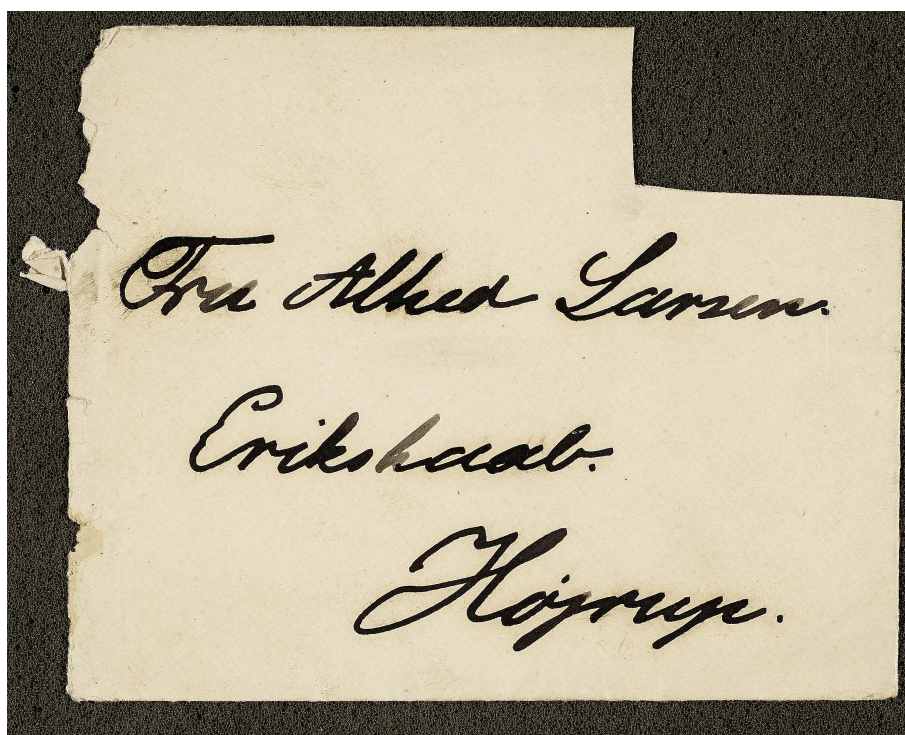 Fru Alhed Larsen.
Erikshaab.
Højrup.